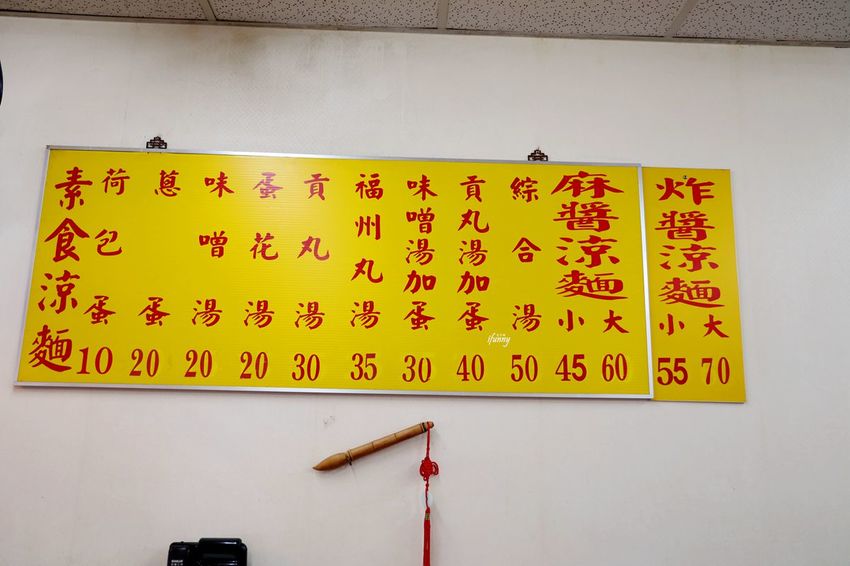 炸醬涼麵
小 大
55 70
麻醬涼麵
小 大
45 60
綜合湯
50
貢丸湯加蛋
40
味噌湯加蛋
30
福州丸湯
35
貢丸湯
30
蛋花湯
20
味噌湯
20
蔥蛋
20
荷包蛋
10
素食涼麵
ifunny